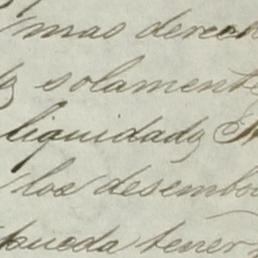 mas derech
solamente
liquidado
los desembo
pueda tener